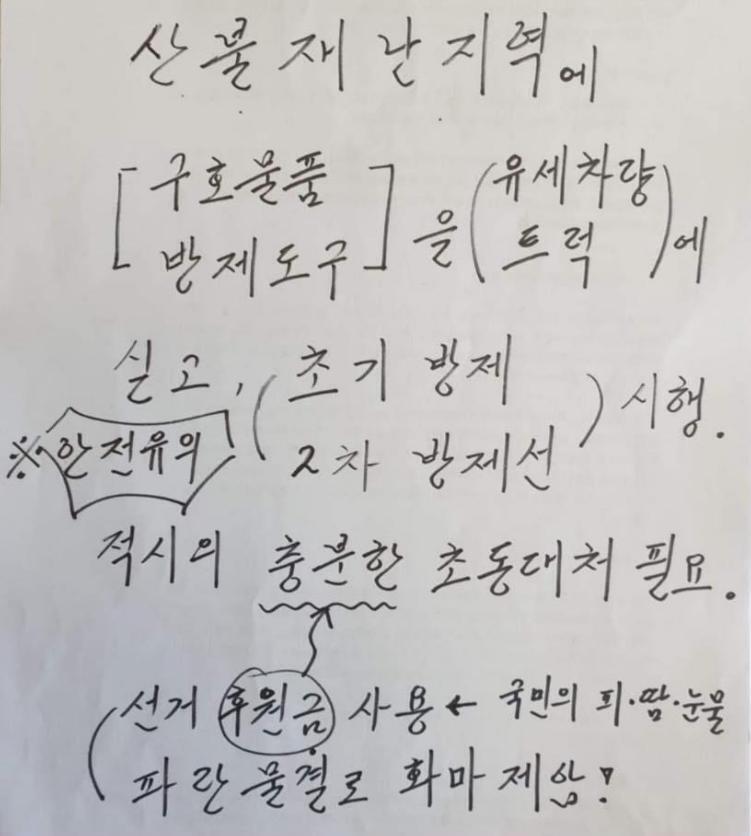 산불재난지역에
[구호물품
방제도구]을(유세차량
트럭)에
실고, (초기 방제
2차 방제선) 시행.
※안전유의
적시의 충분한 초동대처 필요.
(선거 후원금 사용 ← 국민의 피·땀·눈물
파란물결로 화마 제압!